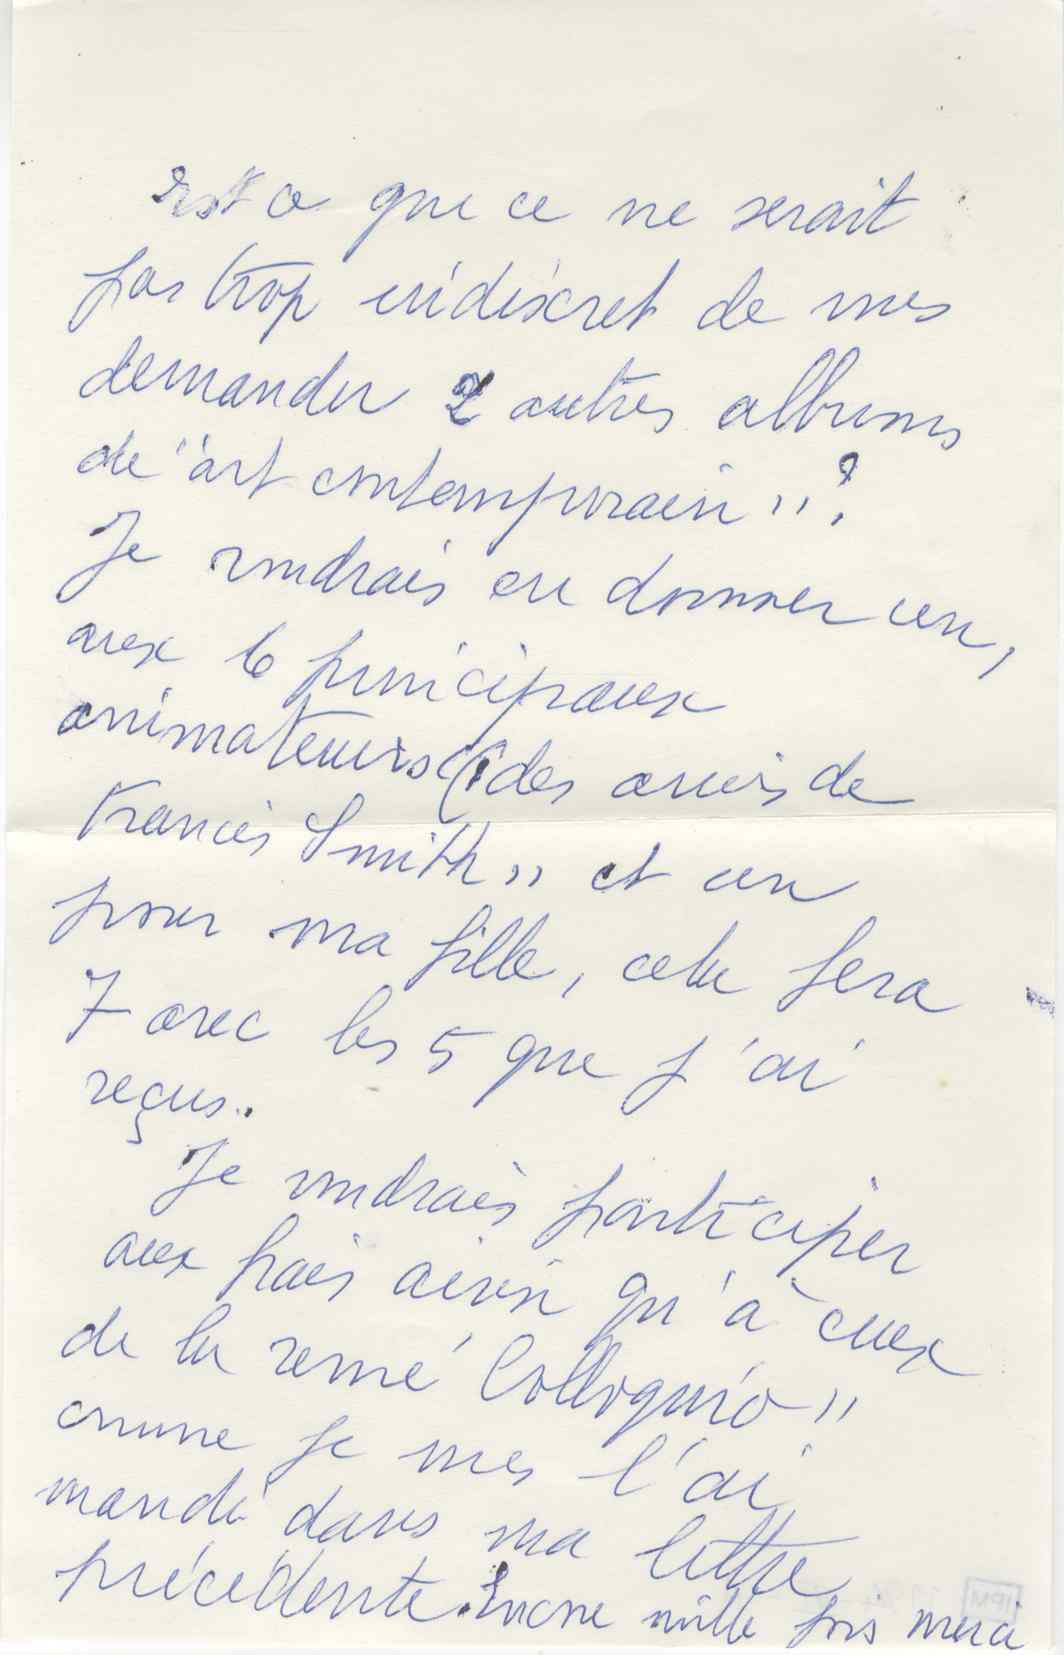 Est ce que ce ne serait
pas trop indiscret de vous
demander 2 autres albums
de "art contemporain" ?
Je voudrais en donner un,
aux 6 principaux
animateurs "des amis de
Francis Smith" et un
pour ma fille, cela fera
7 avec les 5 que j'ai
reçus.
Je voudrais participer
aux frais ainsi qu'à ceux
de la revue "Colloquio"
comme je vous l'ai
mandé dans ma lettre
précédente. Encore mille fois merci